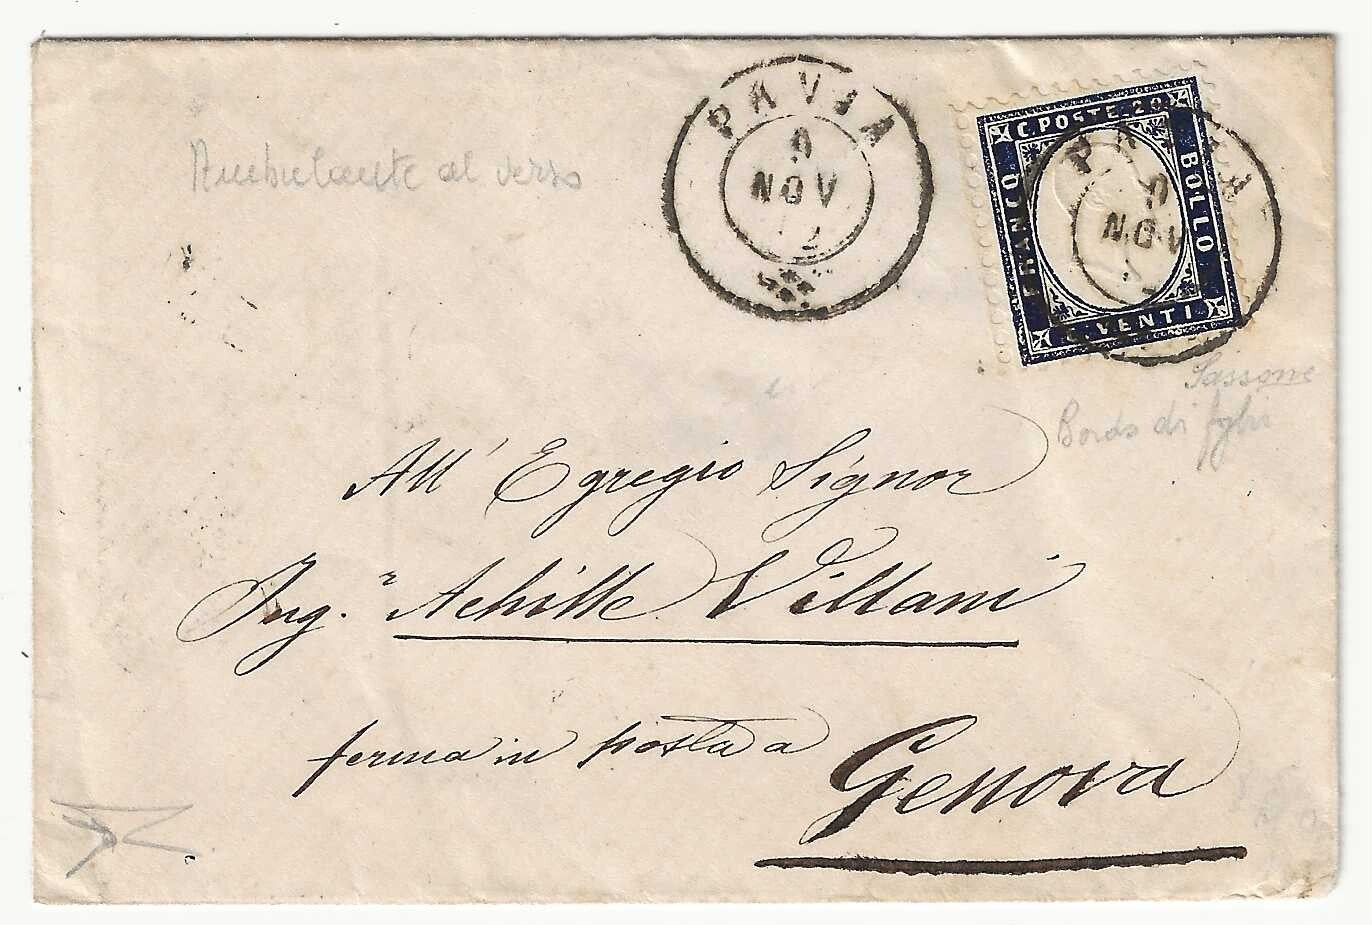 Ambulante al verso
PAVIA
9
NOV
62
C. POSTE 20
FRANCO
BOLLO
C. VENTI
PAVIA
9
NOV
Sassone
Bordo di foglio
All' Egregio Signor
Ing.e Achille Villani
ferma in posta a
Genova